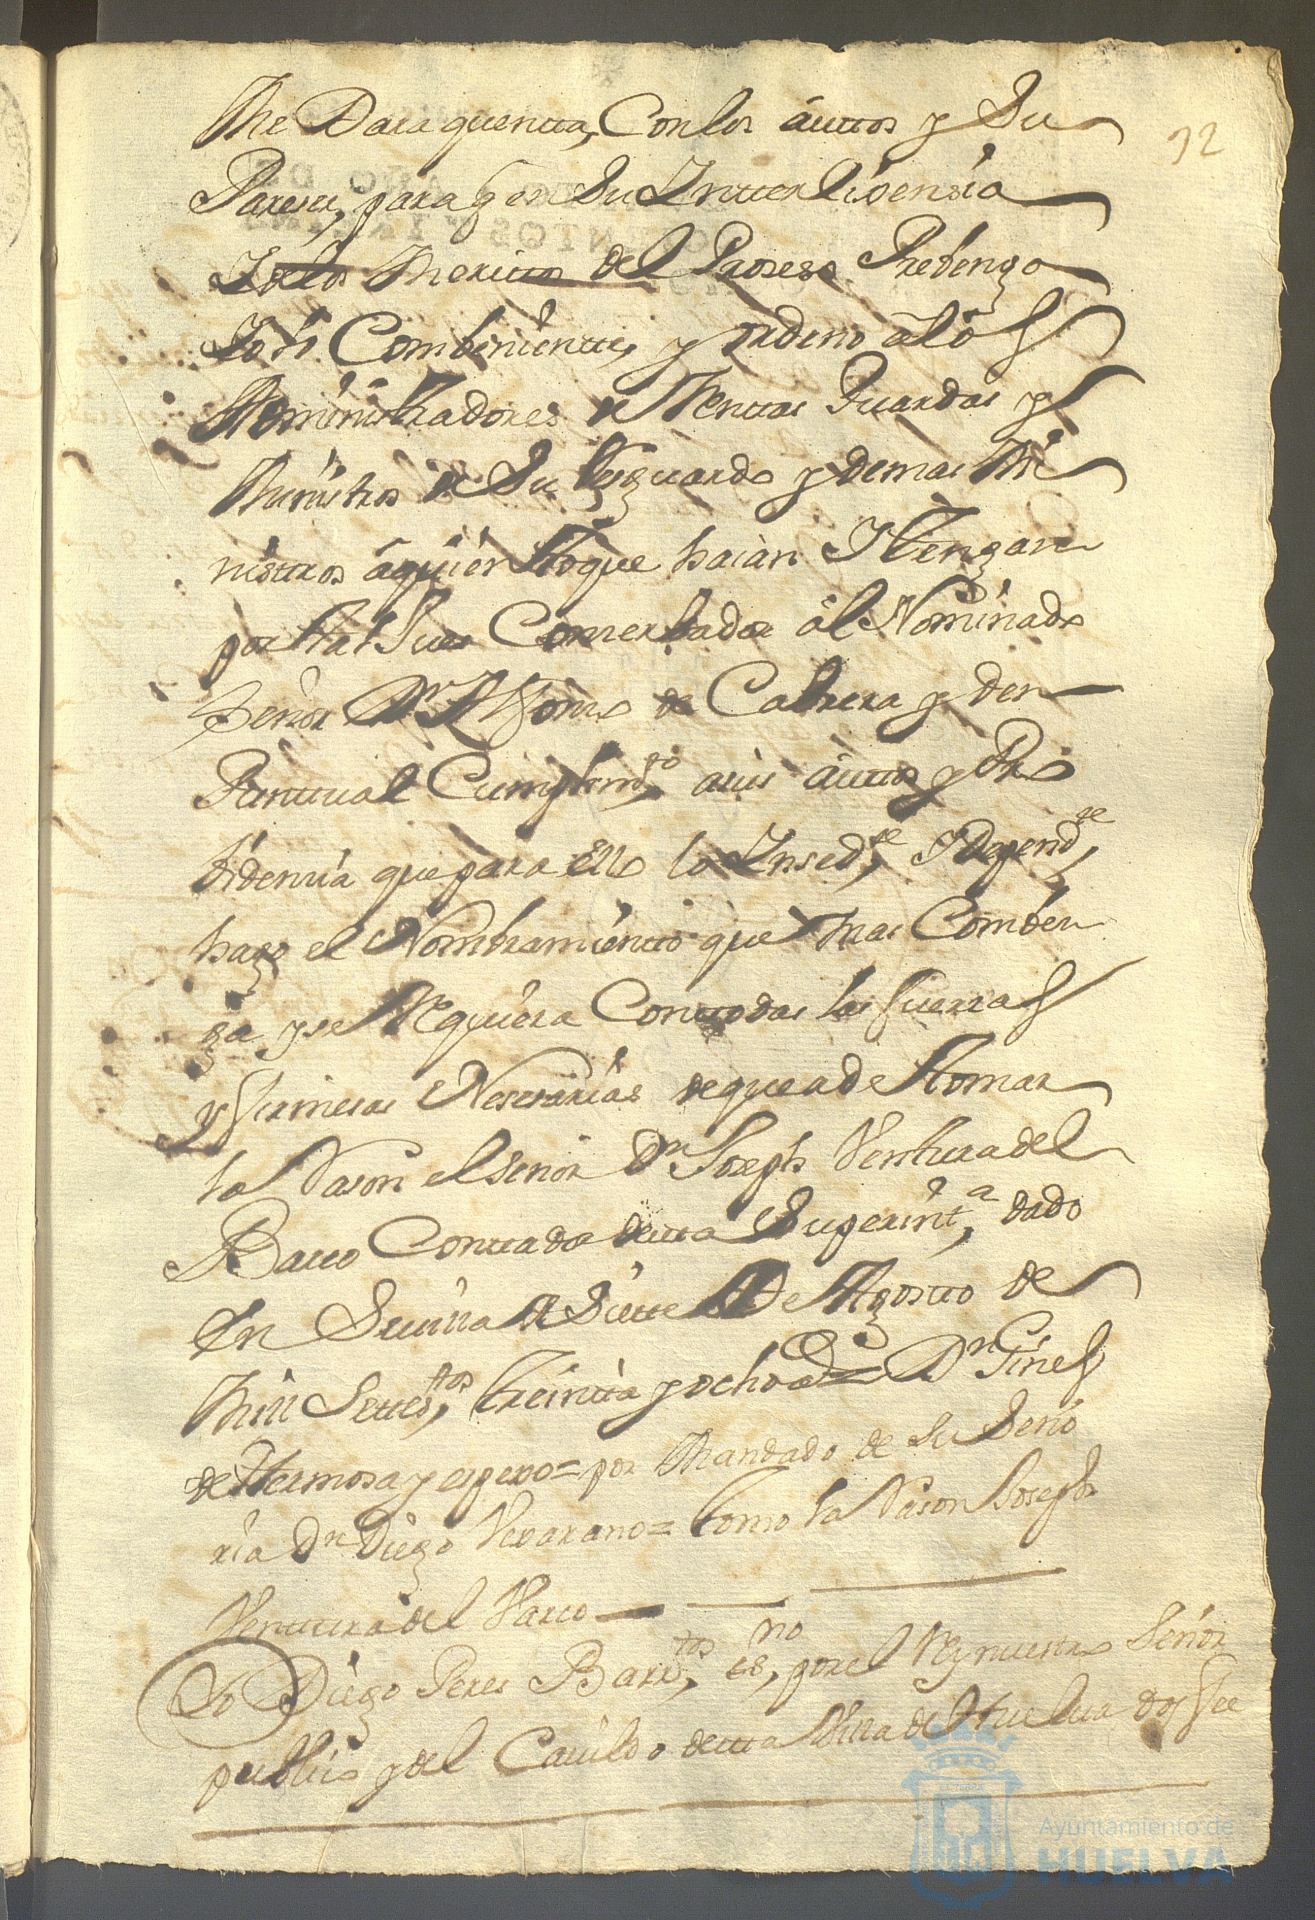 me Dara quentta, Con los auttos y Su
92
Pareser, para q en Su Inttenlisensia
I de los meritos del Proseso Prebengo
Lo q Combeniente, y ordeno a lo s
Administradores de Renttas Guardas y
ministros de Su Resguardo y demas Mi
nistros a quien toque haian I tengan
por tal Jues Comserbador al Nominado
Señor Dn Alfonso de Cabrera y den
Punttual Cumplimto, a sus auttos y Pro
bidencia que para ello lo Insedte, I Dependte,
hago el Nombramientto que mas Comben
ga y se Requiera Con ttodas las fuerzas
y firmesas Nesesarias de que a de tomar
la Rason el señor Dn Joseph Ventura del
Barco Conttador de esta Superinta, dado
En Sevilla a Siette De Agostto de
mill Settestos, treintta y ocho a = Dn Gines
de Hermosa y espexo = por mandado de Su Seño
ria Dn Diego Vexarano = tomo la Rason Joseph
Venttura del Varco
Yo Diego Peres Barrtos, esno, por el Rey nuestro Señor
publico y del Cavildo de esta Villa de Huelva doy fee
Ayuntamiento de
HUELVA